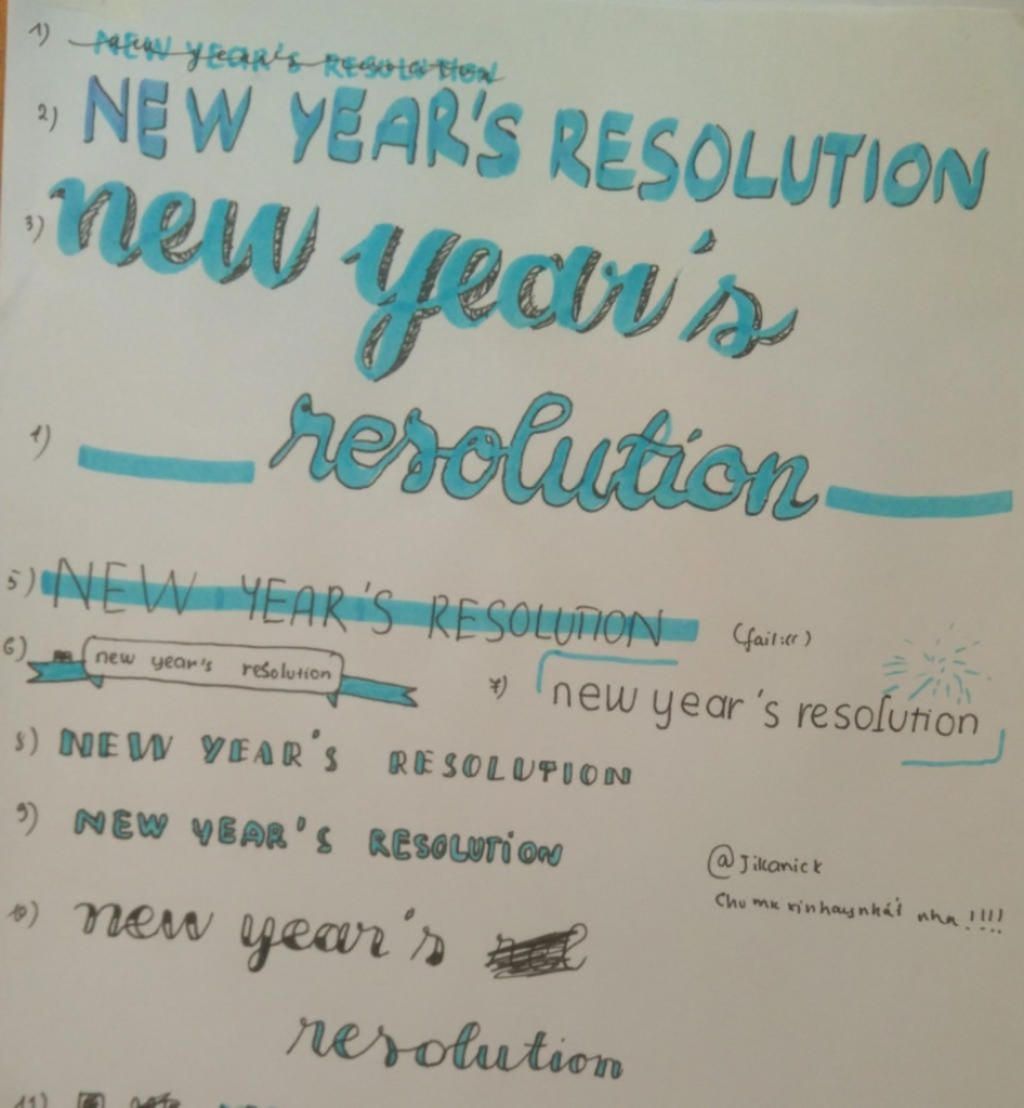 1) NEW YEAR'S RESOLUTION
new year's resolution
2) NEW YEAR'S RESOLUTION
3) new year's
1) resolution
5) NEW YEAR'S RESOLUTION (fail:(()
6) new year's resolution
7) new year's resolution
8) NEW YEAR'S RESOLUTION
9) NEW YEAR'S RESOLUTION
@Jikanick
10) new year's
resolution
11)